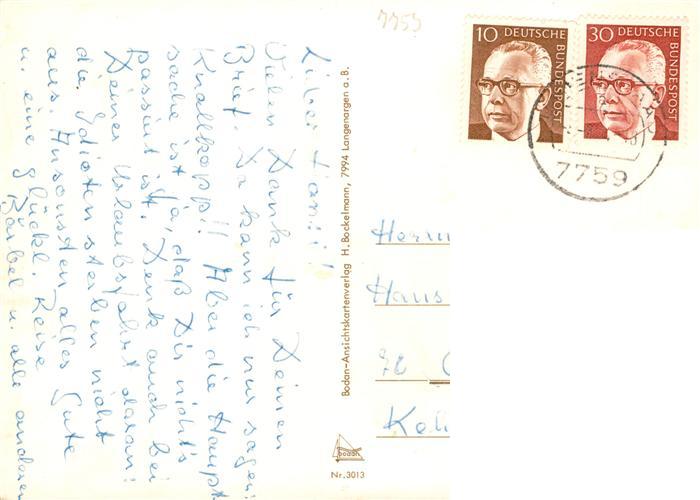 7759
10 DEUTSCHE
BUNDESPOST
30 DEUTSCHE
BUNDESPOST
7759
Lieber Hansi!
Vielen Dank für Deinen
Brief. Da kann ich nur sagen:
Knallkopp!! Aber die Haupt
sache ist ja, daß Dir nichts
passiert ist. Denk auch bei
Deiner Urlaubsfahrt daran:
die Idioten sterben nicht
aus. Ansonsten alles Gute
u. eine glückl. Reise
Bärbel u. alle anderen
Bodan-Ansichtskartenverlag H. Bockelmann, 7994 Langenargen a. B.
Herrn
Hans
bodan
Nr. 3013